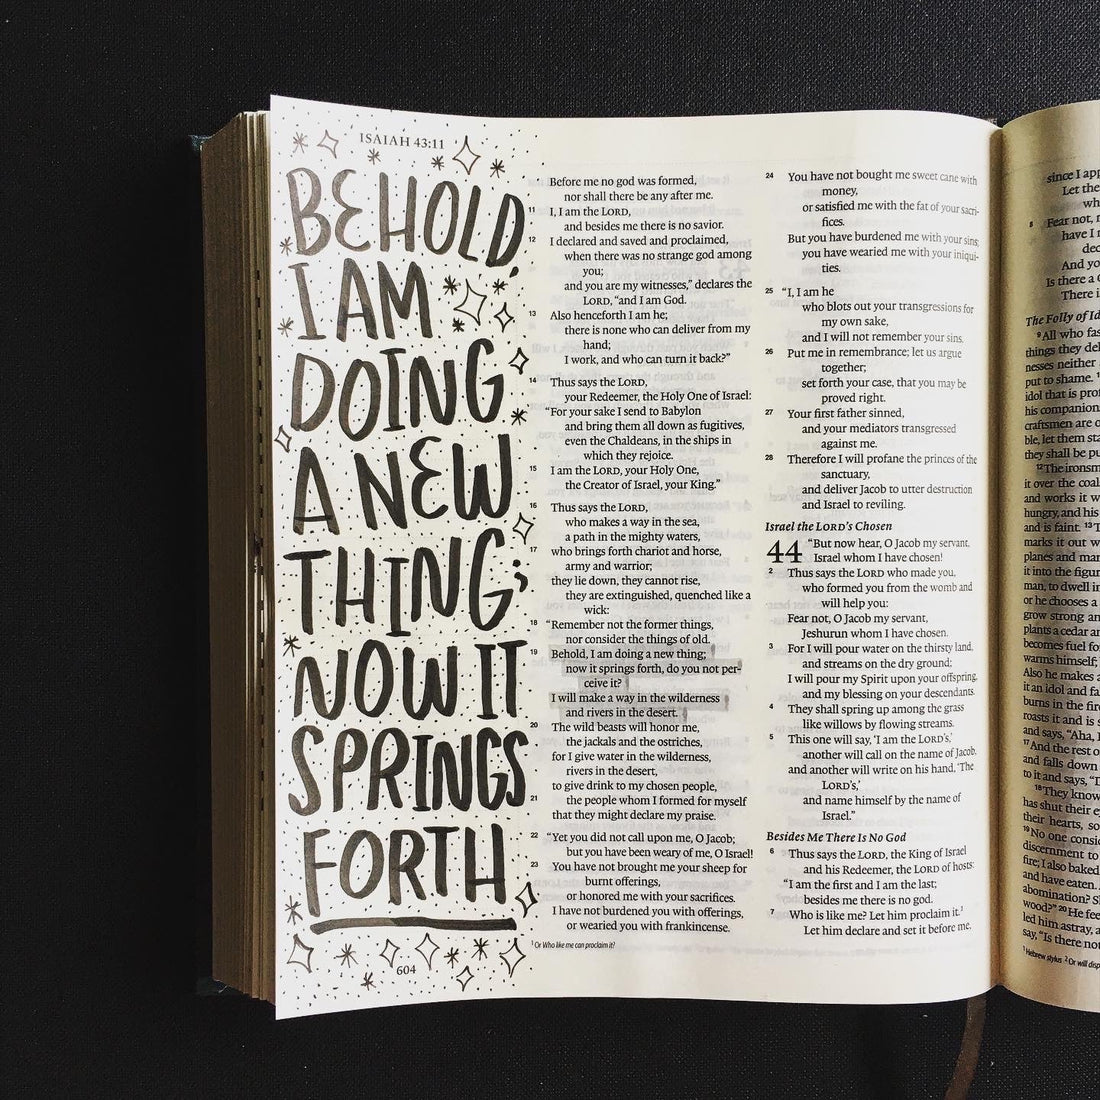 ISAIAH 43:11
BEHOLD,
I AM
DOING
A NEW
THING;
NOW IT
SPRINGS
FORTH
604
Before me no god was formed,
nor shall there be any after me.
11 I, I am the LORD,
and besides me there is no savior.
12 I declared and saved and proclaimed,
when there was no strange god among
you;
and you are my witnesses," declares the
LORD, "and I am God.
13 Also henceforth I am he;
there is none who can deliver from my
hand;
I work, and who can turn it back?"
14 Thus says the LORD,
your Redeemer, the Holy One of Israel:
"For your sake I send to Babylon
and bring them all down as fugitives,
even the Chaldeans, in the ships in
which they rejoice.
15 I am the LORD, your Holy One,
the Creator of Israel, your King."
16 Thus says the LORD,
who makes a way in the sea,
a path in the mighty waters,
17 who brings forth chariot and horse,
army and warrior;
they lie down, they cannot rise,
they are extinguished, quenched like a
wick:
18 "Remember not the former things,
nor consider the things of old.
19 Behold, I am doing a new thing;
now it springs forth, do you not per-
ceive it?
I will make a way in the wilderness
and rivers in the desert.
20 The wild beasts will honor me,
the jackals and the ostriches,
for I give water in the wilderness,
rivers in the desert,
to give drink to my chosen people,
21 the people whom I formed for myself
that they might declare my praise.
22 "Yet you did not call upon me, O Jacob;
but you have been weary of me, O Israel!
23 You have not brought me your sheep for
burnt offerings,
or honored me with your sacrifices.
I have not burdened you with offerings,
or wearied you with frankincense.
1 Or Who like me can proclaim it?
24 You have not bought me sweet cane with
money,
or satisfied me with the fat of your sacri-
fices.
But you have burdened me with your sins;
you have wearied me with your iniqui-
ties.
25 "I, I am he
who blots out your transgressions for
my own sake,
and I will not remember your sins.
26 Put me in remembrance; let us argue
together;
set forth your case, that you may be
proved right.
27 Your first father sinned,
and your mediators transgressed
against me.
28 Therefore I will profane the princes of the
sanctuary,
and deliver Jacob to utter destruction
and Israel to reviling.
Israel the LORD's Chosen
44 "But now hear, O Jacob my servant,
Israel whom I have chosen!
2 Thus says the LORD who made you,
who formed you from the womb and
will help you:
Fear not, O Jacob my servant,
Jeshurun whom I have chosen.
3 For I will pour water on the thirsty land,
and streams on the dry ground;
I will pour my Spirit upon your offspring,
and my blessing on your descendants.
4 They shall spring up among the grass
like willows by flowing streams.
5 This one will say, 'I am the LORD's,'
another will call on the name of Jacob,
and another will write on his hand, 'The
LORD's,'
and name himself by the name of
Israel."
Besides Me There Is No God
6 Thus says the LORD, the King of Israel
and his Redeemer, the LORD of hosts:
"I am the first and I am the last;
besides me there is no god.
7 Who is like me? Let him proclaim it.1
Let him declare and set it before me,
since I app
Let the
8 Fear not, n
have I n
And yo
Is there a G
There i
The Folly of Id
9 All who fas
things they del
nesses neither
put to shame.
idol that is prof
his companion
craftsmen are o
ble, let them sta
they shall be pu
12 The ironsm
it over the coal
and works it w
hungry, and his
and is faint. 13 T
marks it out w
planes and mar
it into the figur
man, to dwell in
or he chooses a
grow strong an
plants a cedar an
becomes fuel fo
warms himself,
Also he makes a
it an idol and fa
burns in the fire
roasts it and is s
and says, "Aha, I
17 And the rest o
and falls down
to it and says, "D
18 They know
has shut their ey
their hearts, so
19 No one consid
discernment to
fire; I also baked
and have eaten.
abomination? Sh
wood?" 20 He fee
led him astray, a
say, "Is there not
1 Hebrew stylus 2 Or will disp